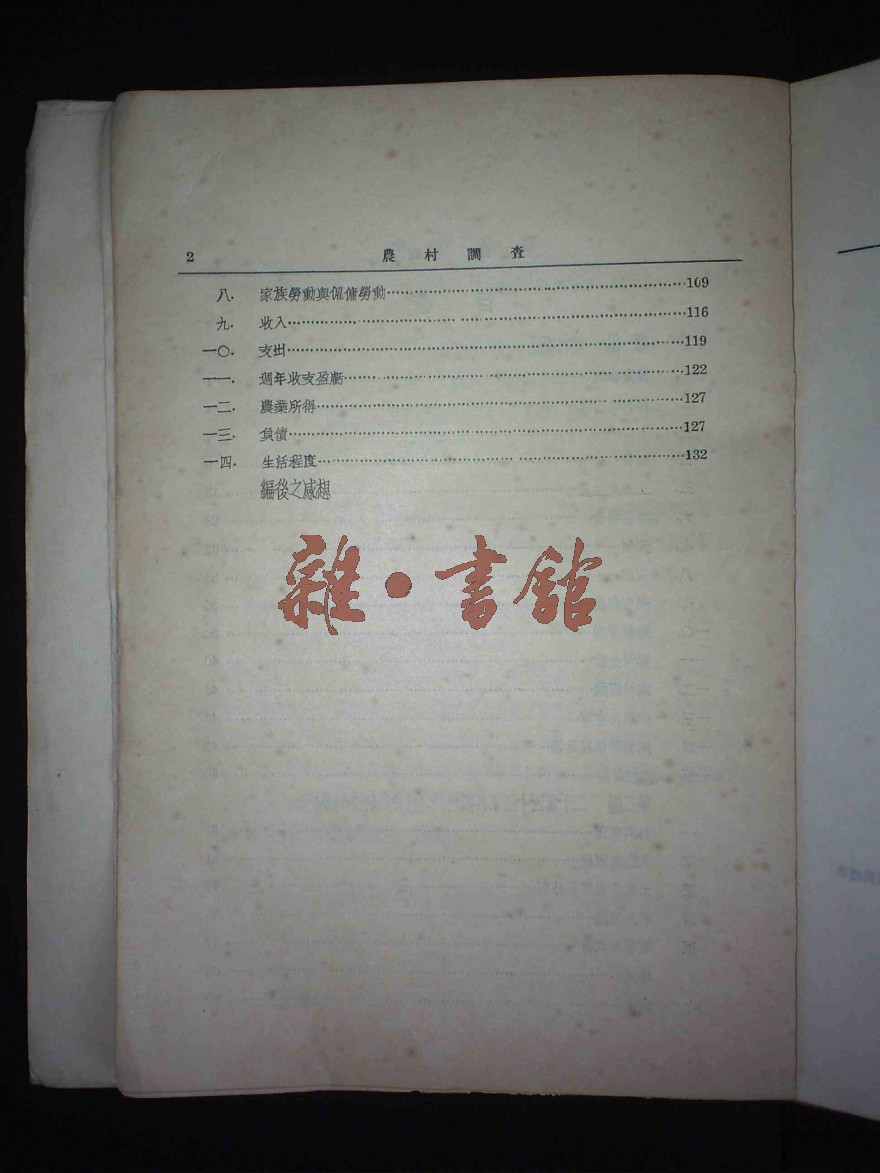 2 農村調查
八. 家族勞動與僱傭勞動……109
九. 收入……116
一〇. 支出……119
一一. 週年收支盈虧……122
一二. 農業所得……127
一三. 負債……127
一四. 生活程度……132
編後之感想
雜·書館